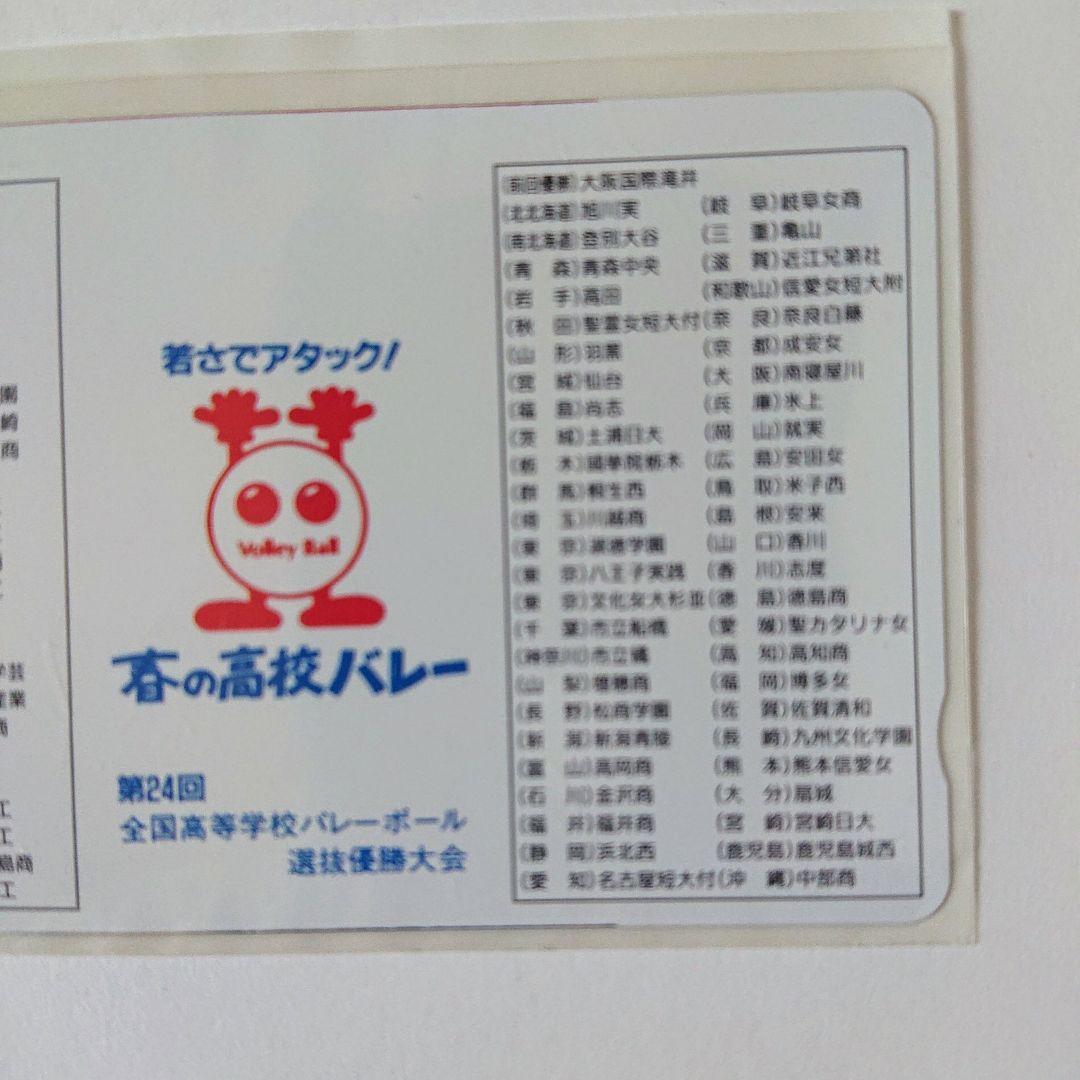 園
崎
商
芸
産業
商
工
工
島商
工
若さでアタック!
Volley Ball
春の高校バレー
第24回
全国高等学校バレーボール
選抜優勝大会
(前回優勝)大阪国際滝井
(北北海道)旭川実 (岐 阜)岐阜女商
(南北海道)登別大谷 (三 重)亀山
(青 森)青森中央 (滋 賀)近江兄弟社
(岩 手)高田 (和歌山)信愛女短大附
(秋 田)聖霊女短大付 (奈 良)奈良白藤
(山 形)羽黒 (京 都)成安女
(宮 城)仙台 (大 阪)南寝屋川
(福 島)尚志 (兵 庫)氷上
(茨 城)土浦日大 (岡 山)就実
(栃 木)國學院栃木 (広 島)安田女
(群 馬)桐生西 (鳥 取)米子西
(埼 玉)川越商 (島 根)安来
(東 京)学園 (山 口)香川
(東 京)八王子実践 (香 川)志度
(東 京)文化女大杉並 (徳 島)徳島商
(千 葉)市立船橋 (愛 媛)聖カタリナ女
(神奈川)市立橘 (高 知)高知商
(山 梨)増穂商 (福 岡)博多女
(長 野)松商学園 (佐 賀)佐賀清和
(新 潟)新潟青陵 (長 崎)九州文化学園
(富 山)高岡商 (熊 本)熊本信愛女
(石 川)金沢商 (大 分)扇城
(福 井)福井商 (宮 崎)宮崎日大
(静 岡)浜北西 (鹿児島)鹿児島城西
(愛 知)名古屋短大付 (沖 縄)中部商